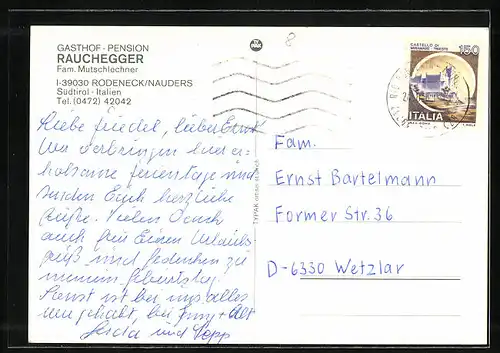 GASTHOF - PENSION
RAUCHEGGER
Fam. Mutschlechner
I-39030 RODENECK/NAUDERS
Südtirol - Italien
Tel. (0472) 42042
8
CASTELLO DI
MIRAMARE - TRIESTE
150
ITALIA
Liebe Friedel, lieber Ernst
Wir verbringen hier er-
holsame Ferientage und
senden Euch herzliche
Grüße. Vielen Dank
auch für Euren Urlaubs-
gruß und Gedenken zu
meinem Geburtstag.
Sonst ist bei uns alles
bei Jung + Alt
und Sepp
TYPAK
Fam.
Ernst Bartelmann
Formerstr. 36
D-6330 Wetzlar